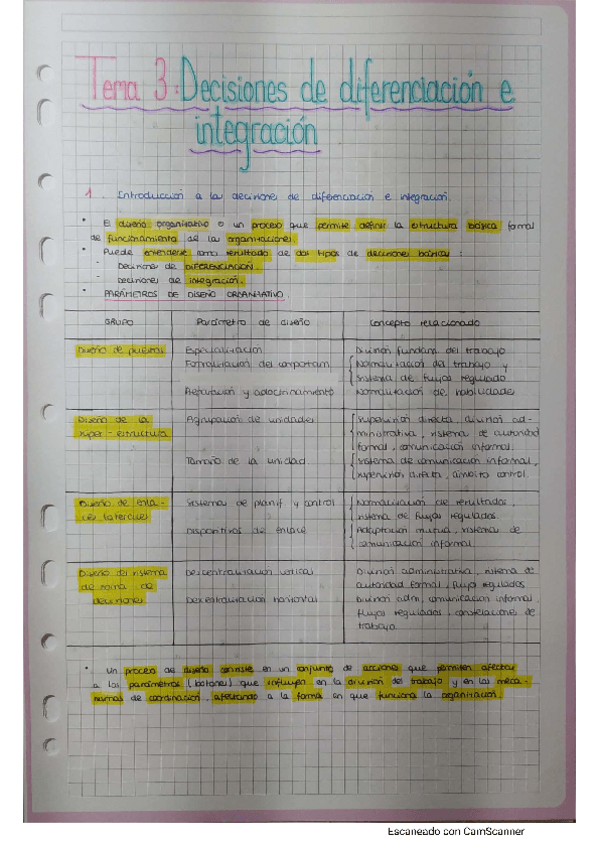 Tema 3: Decisiones de diferenciación e
integración
1. Introducción a la decisiones de diferenciación e integración.
• El diseño organizativo o un proceso que permite definir la estructura básica formal
de funcionamiento de las organizaciones.
• Puede entenderse como resultado de dos tipos de decisiones básicas:
- Decisiones de DIFERENCIACIÓN.
- decisiones de integración.
• PARÁMETROS DE DISEÑO ORGANITATIVO.
GRUPO Parámetro de diseño Concepto relacionado
Diseño de puestos Especialización División fundam. del trabajo
Formalización del comportam. Normalización del trabajo y
sistema de flujos regulado
Preparación y adoctrinamiento Normalización de habilidades
Diseño de la Agrupación de unidades supervisión directa, división ad-
super-estructura ministrativa, sistema de autoridad
formal, comunicación informal.
Tamaño de la unidad sistema de comunicación informal,
supervisión directa, ámbito control.
Diseño de enla- Sistemas de planif y control Normalización de resultados,
ces laterales sistema de flujos regulados
Dispositivos de enlace Adaptación mutua, sistema de
comunicación informal
Diseño del sistema Descentralización vertical División administrativa, sistema de
de toma de autoridad formal, flujos regulados
decisiones Descentralización horizontal División adm, comunicación informal
flujos regulados, constelaciones de
trabajo.
• Un proceso de diseño consiste en un conjunto de acciones que permiten afectar
a los parámetros (botones) que influyen en la división del trabajo y en los meca-
nismos de coordinación, afectando a la forma en que funciona la organización.
Escaneado con CamScanner